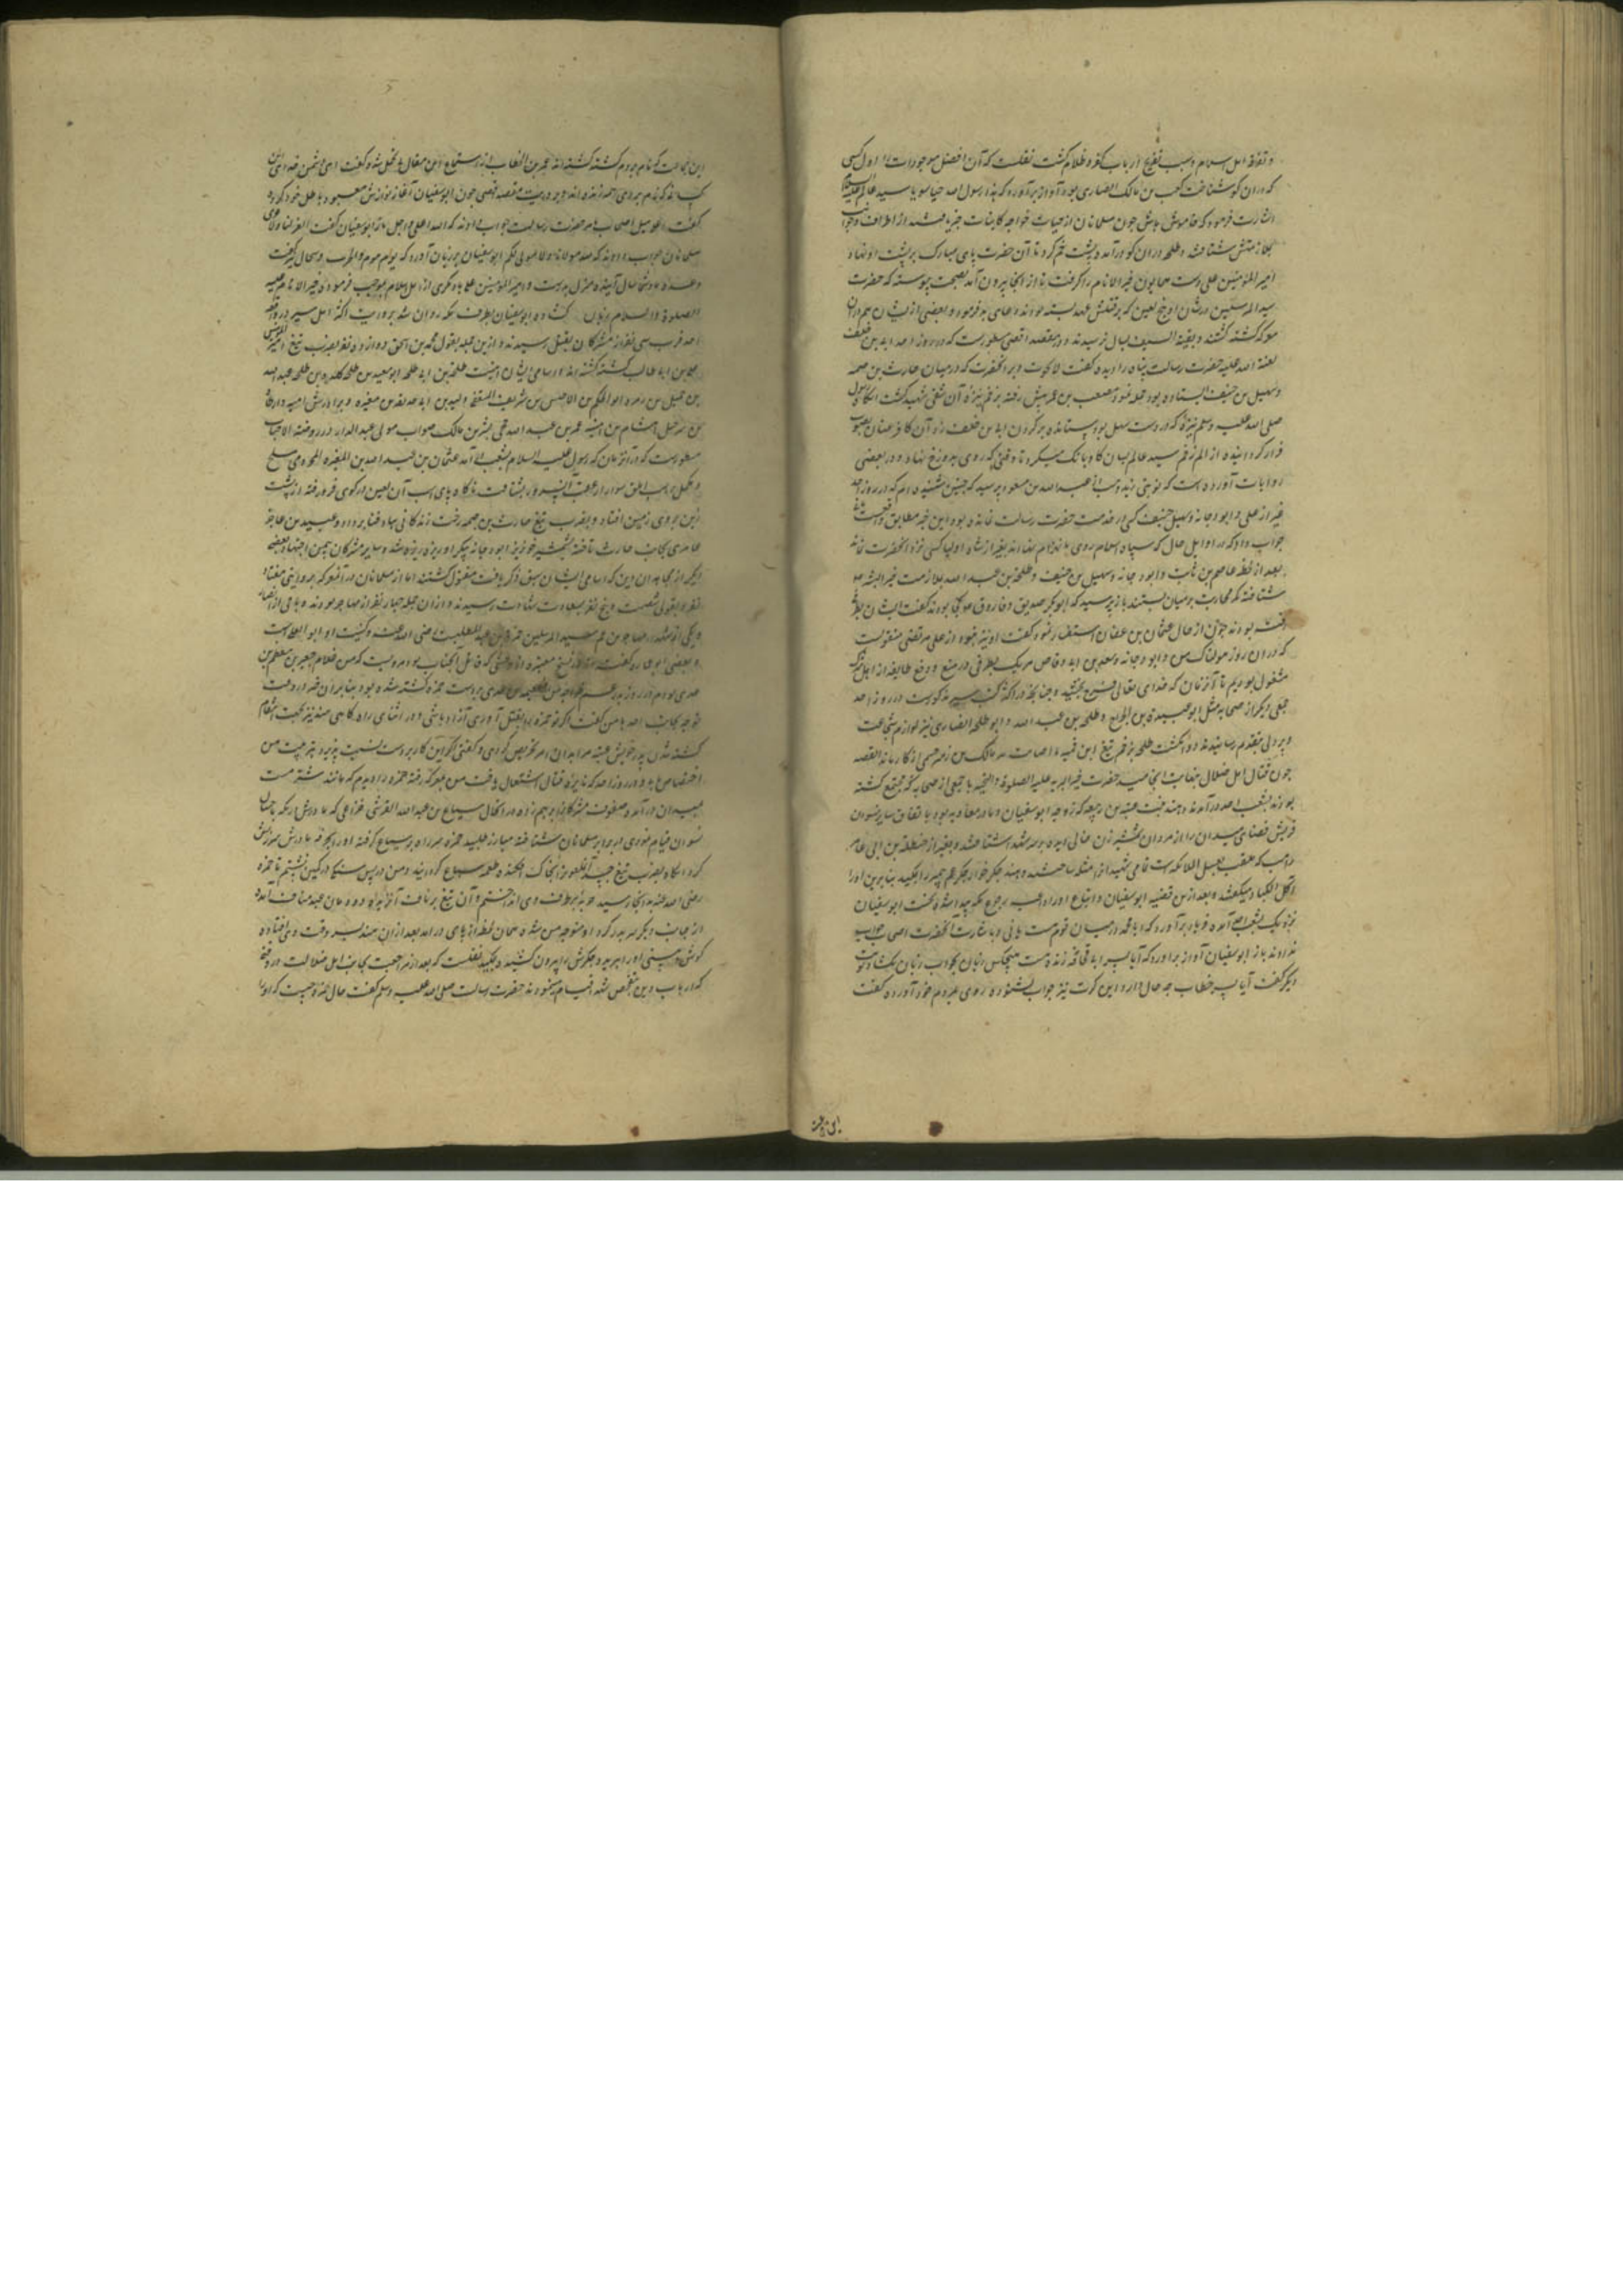 و تفرقه اهل اسلام و سبب تفریح ارباب کفر و ظلام گشت نقلست که آن افضل موجودات را اول کسی
که در ان کو شناخت کعب بن مالک انصاری بود آواز برآورد که یا رسول الله سید عالم علیه السلام
اشارت فرمود که خاموش باش چون مسلمانان از حیات خواجه کاینات خبر یافتند از اطراف و جوانب
بملازمتش شتافتند و طلحه در ان کو درآمد و پشت خم کرد تا آن حضرت پای مبارک بر پشت او نهاد و
امیر المؤمنین علی دست همایون خیر الانام را گرفت تا از انجا بیرون آمد بصحت پیوسته که حضرت
سید المرسلین در شان او پنج لعین که بر قتلش عهد بسته بودند دعای بد فرمود و بعضی از ایشان هم در ان
معرکه کشته گشتند و بقیة السیف بسال نرسیدند و در مقصد اقصی مسطورست که در روز احد ابی بن خلف
لعنة الله علیه حضرت رسالت پناه را دیده گفت لا نجوت و بر آنحضرت که درمیان حارث بن صمه
و سهیل بن حنیف ایستاده بود حمله نمود مصعب بن عمیر پیش رفته بزخم نیزه آن شقی شهید گشت انکاه رسول
صلی الله علیه وسلم نیزه که در دست سهل بود ستانده بر کردن ابی بن خلف زد آن کافر عنان بصوب
فرار کردانیده از الم زخم سید عالم بسان کاو بانک میکرد تا وقتی که روی بدوزخ نهاد و در بعضی
روایات آورده است که نوبتی زید وهب از عبد الله بن مسعود پرسید که چنین شنیده ام که در روز احد
غیر از علی و ابو دجانه و سهیل حنیف کسی در خدمت حضرت رسالت نمانده بود این خبر مطابق واقعست
جواب داد که در اوایل حال که سپاه اسلام روی بانهزام نهادند بغیر از شاه اولیا کسی نزد آنحضرت نماند
بعد از لحظه عاصم بن ثابت و ابو دجانه و سهیل بن حنیف و طلحة بن عبد الله بملازمت خیر البشر
شتافته کمر محاربت بر میان بستند باز پرسید که ابوبکر صدیق و فاروق کجا بودند گفت ایشان بطرفی
رفته بودند چون از حال عثمان بن عفان استفسار نمود گفت او نیز نبود از علی مرتضی منقولست
که در ان روز هولناک من و ابو دجانه و سعد بن ابی وقاص هر یک بطرفی در منع و دفع طایفه از اهل شرک
مشغول بودیم تا آنزمان که خدای تعالی فرح بخشید و چنانچه در اکثر کتب سیر مذکورست در روز احد
جمعی دیگر از صحابه مثل ابو عبیدة بن الجراح و طلحة بن عبد الله و ابو طلحه انصاری نیز لوازم شجاعت
و پر دلی بتقدیم رسانیدند و دو انکشت طلحه بزخم تیغ ابن قمیه یا اصابت سهم مالک بن زهیر جشمی از کار بماند القصه
چون قتال اهل ضلال بنهایت انجامید حضرت خیر البریه علیه الصلوة والتحیه با جمعی از صحابه که مجتمع گشته
بودند بشعب احد درآمدند و هند بنت عتبه بن ربیعه که زوجه ابو سفیان و مادر معاویه بود با تفاق سایر نسوان
قریش فضای میدان را از مردان شمشیرزن خالی دیده بر سر شهدا شتافتند و بغیر از حنظلة بن ابی عامر
راهب که ملقب بغسیل الملائکه است تمامی شهیدان را مثله ساختند و هند جگر خوار جکر عم پیغمبر را بمکید بنابرین او را
آکلة الکباد میکفتند و بعد از ین قضیه ابو سفیان و اتباع او را داعیه رجوع مکه پیدا شده نخست ابو سفیان
نزدیک بشعب احد آمده فریاد برآورد که آیا محمد درمیان قوم هست یا نی و باشارت آنحضرت اصحاب جواب
ندادند باز ابو سفیان آواز برآورد که آیا پسر ابی قحافه زنده است هیچکس زبان بجواب زبان نکشاد نوبت
دیکر گفت آیا پسر خطاب چه حال دارد این کرت نیز جواب نشنوده روی بمردم خود آورده گفت
این جماعت که نام بردم کشته گشته اند عمر بن الخطاب از استماع این مقال بی تحمل شده گفت ای دشمن خدای
کسانی که نام بردی همه زنده اند و بروایت مقصد اقصی چون ابو سفیان آغاز نوازش معبود باطل خود کرده
گفت اعل هبل اصحاب بامر حضرت رسالت جواب دادند که الله اعلی و اجل باز ابو سفیان گفت العزی لنا ولا عزی لکم
مسلمانان جواب دادند که الله مولانا ولا مولی لکم ابو سفیان بر زبان آورد که یوم بیوم والحرب سجال گفت
وعده ما و شما سال آینده منزل بدرست و امیر المؤمنین علی یا دیکری از اهل اسلام بموجب فرموده خیر الانام علیه
الصلوة والسلام زبان کشاده ابو سفیان بطرف مکه روان شد بروایت اکثر اهل سیر در واقعه
احد قرب سی نفر از مشرکان بقتل رسیدند و ازین جمله بقول محمد بن اسحق دوازده نفر بضرب تیغ امیر المؤمنین
علی بن ابی طالب کشته گشته اند و اسامی ایشان اینست طلحة بن ابی طلحه ابو سعید بن طلحه کلده بن طلحه عبد الله
بن حمیل بن زهره ابو الحکم بن الاخنس بن شریق الثقفی ولید بن ابی حذیفه بن مغیره و برادرش امیه و ارطاة
بن شرحبیل هشام بن امیه عمرو بن عبد الله جمحی بشر بن مالک صواب مولی عبد الدار در روضة الاحباب
مسطورست که در آنزمان که رسول علیه السلام بشعب درآمد عثمان بن عبد الله بن المغیره المخزومی مسلح
و مکمل بر اسب ابلق سوار از عقب آنسرور بشتافت ناکاه پای اسب آن لعین در کوی فرو رفته از پشت
زین بروی زمین افتاد و بضرب تیغ حارث بن صمه رخت زندکانی بباد فنا برداد و عبید بن حاجز
عامری بجانب حارث تاخته بشمشیر خونریز ابو دجانه پیکر او ریزه ریزه شد و سایر مشرکان بیمن اجتهاد بعضی
دیکر از مجاهدان دین که اسامی ایشان سبق ذکر یافت مقتول گشتند اما از مسلمانان در آنمعرکه بروایتی هفتاد
نفر و بقولی شصت و پنج نفر بسعادت شهادت رسیدند و ازان جمله چهار نفر از مهاجر بودند و باقی از انصار
و یکی از شهداء مهاجرین عم سید المرسلین حمزه بن عبد المطلبست رضی الله عنه و کنیت او ابو یعلی است
و بعضی ابو عماره گفته اند در نسخ معتبره از وحشی که قاتل آنجناب بود مرویست که من غلام جبیر بن مطعم بن
عدی بودم در روز بدر عم خواجه من طعیمه بن عدی بر دست حمزه کشته شده بود بنابران خود در وقت
توجه بجانب احد با من گفت اگر تو حمزه را بقتل آوری آزاد باشی و در اثنای راه کاهی هند نیز بجهت انتقام
کشته شدن پدر خویش عتبه مرا بدان امر تحریص کردی و کفتی اکر این کار بر دست تمشیت پذیرد بتربیت من
اختصاص یابی و در روز احد که نایره قتال اشتعال یافت من بمعرکه رفته حمزه را دیدم که مانند شتر مست
بمیدان درآمد و صفوف مشرکان را بر هم زده در انحال سباع بن عبد الله القرشی خزاعی که مادرش بمکه ختان
نسوان قیام نمودی در برابر مسلمانان شتافته مبارز طلبید حمزه سر راه بر سباع کرفته او را بحرفه مادرش سرزنش
کرد انکاه بضرب تیغ جسد آن ملعون را بخاک افکنده طعمه سباع کردانید و من در پس سنکی در کمین نشستم تا حمزه
رضی الله عنه بدانجا رسید حربه بطرف وی انداختم و آن تیغ بر ناف آنزبده دودمان عبد مناف آمده
از جانب دیکر سر بدر کرد او متوجه من شده همان لحظه از پای درآمد بعد ازان هند بسر وقت وی افتاده
کوش و بینی او را ببرید و جکرش را بیرون کشیده بمکید نقلست که بعد از مراجعت مخالف اهل ضلالت در وقتی
که ارباب دین بتفحص شهدا قیام مینمودند حضرت رسالت صلی الله علیه وسلم گفت حال حمزه چیست که او را